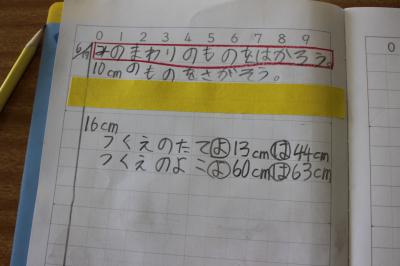 0 1 2 3 4 5 6 7 8 9
6/9 みのまわりのものをはかろう。
10cmのものをさがそう。
16cm
つくえのたてよ13cmは44cm
つくえのよこよ60cmは63cm
0